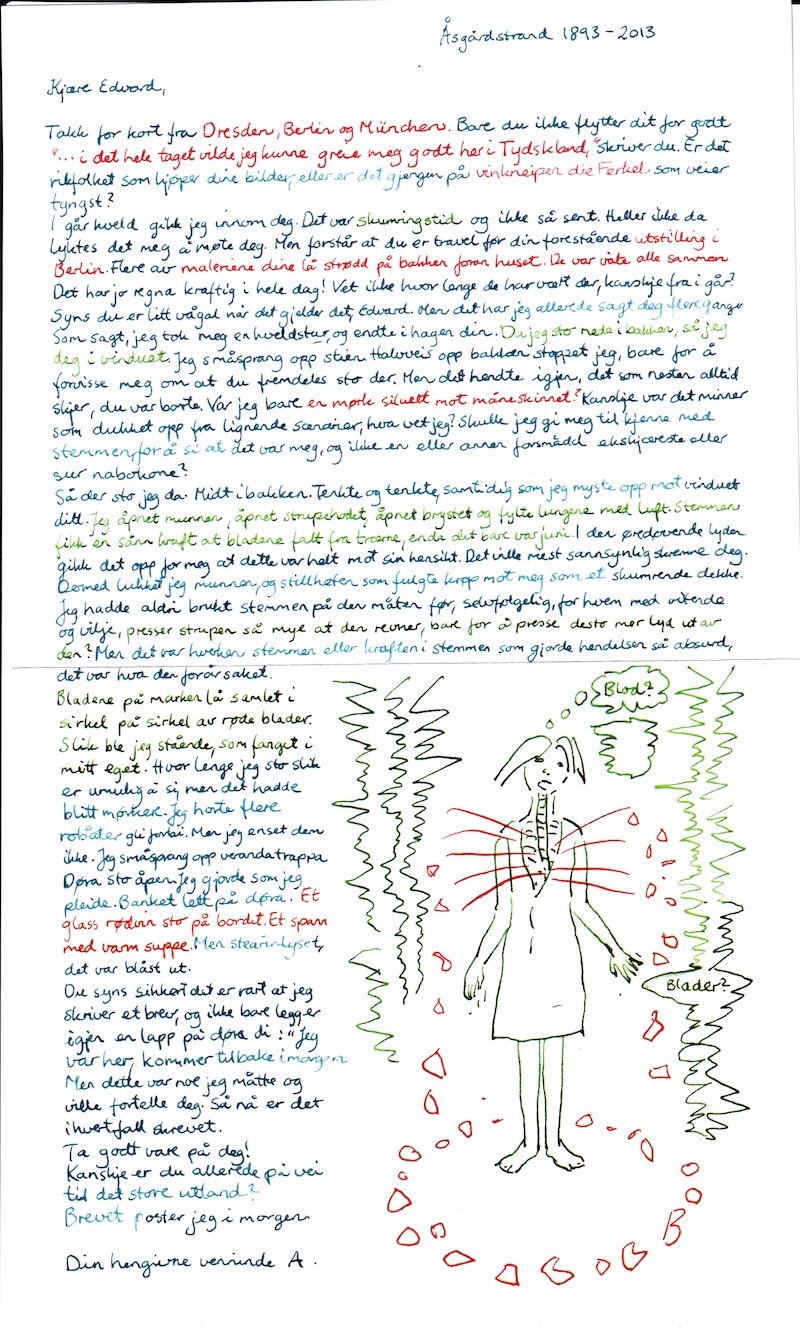 Åsgårdstrand 1893-2013
Kjære Edvard,
Takk for kort fra Dresden, Berlin og München. Bare du ikke flytter dit for godt
"... i det hele taget vilde jeg kunne greie meg godt her i Tydskland," skriver du. Er det
rikfolket som kjøper dine bilder, eller er det gjengen på vinkneipen die Ferkel som veier
tyngst?
I går kveld gikk jeg innom deg. Det var skumringstid og ikke så sent. Heller ikke da
lyktes det meg å møte deg. Men forstår at du er travel før din forestående utstilling i
Berlin. Flere av maleriene dine lå strødd på bakken foran huset. De var våte alle sammen
Det har jo regna kraftig i hele dag! Vet ikke hvor lenge de har vært der, kanskje fra i går?
Syns du er litt vågal når det gjelder det, Edvard. Men det har jeg allerede sagt deg flere ganger
Som sagt, jeg tok meg en kveldstur, og endte i hagen din. Da jeg sto nede i bakken, så jeg
deg i vinduet. Jeg småsprang opp stien. Halvveis opp bakken stoppet jeg, bare for å
forvisse meg om at du fremdeles sto der. Men det hendte igjen, det som nesten alltid
skjer, du var borte. Var jeg bare en mørk siluett mot måneskinnet? Kanskje var det minner
som dukket opp fra lignende scenarier, hva vet jeg? Skulle jeg gi meg til kjenne med
stemmen, for å si at det var meg, og ikke en eller annen forsmådd ekskjæreste eller
sur nabokone?
Så der sto jeg da. Midt i bakken. Tenkte og tenkte, samtidig som jeg myste opp mot vinduet
ditt. Jeg åpnet munnen, åpnet strupehodet, åpnet brystet og fylte lungene med luft. Stemmen
fikk en sånn kraft at bladene falt fra trærne, enda det bare var juni. I den øredøvende lyden
gikk det opp for meg at dette var helt mot sin hensikt. Det ville mest sannsynlig skremme deg.
Dermed lukket jeg munnen, og stillheten som fulgte krøp mot meg som et skumrende dekke.
Jeg hadde aldri brukt stemmen på den måten før, selvfølgelig, for hvem med vitende
og vilje, presser strupen så mye at den revner, bare for å presse desto mer lyd ut av
den? Men det var hverken stemmen eller kraften i stemmen som gjorde hendelsen så absurd,
det var hva den forårsaket.
Bladene på marken lå samlet i
sirkel på sirkel av røde blader.
Slik ble jeg stående, som fanget i
mitt eget. Hvor lenge jeg sto slik
er umulig å si, men det hadde
blitt mørkere. Jeg hørte flere
robåter gli forbi. Men jeg enset dem
ikke. Jeg småsprang opp verandatrappa
Døra sto åpen. Jeg gjorde som jeg
pleide. Banket lett på døra. Et
glass rødvin sto på bordet. Et spann
med varm suppe. Men stearinlyset,
det var blåst ut.
Du syns sikkert det er rart at jeg
skriver et brev, og ikke bare legger
igjen en lapp på døra di: "Jeg
var her, kommer tilbake i morgen
Men dette var noe jeg måtte og
ville fortelle deg. Så nå er det
ihvertfall skrevet.
Ta godt vare på deg!
Kanskje er du allerede på vei
til det store utland?
Brevet poster jeg i morgen.
Din hengivne venninde A.
Blod?
Blader?
B